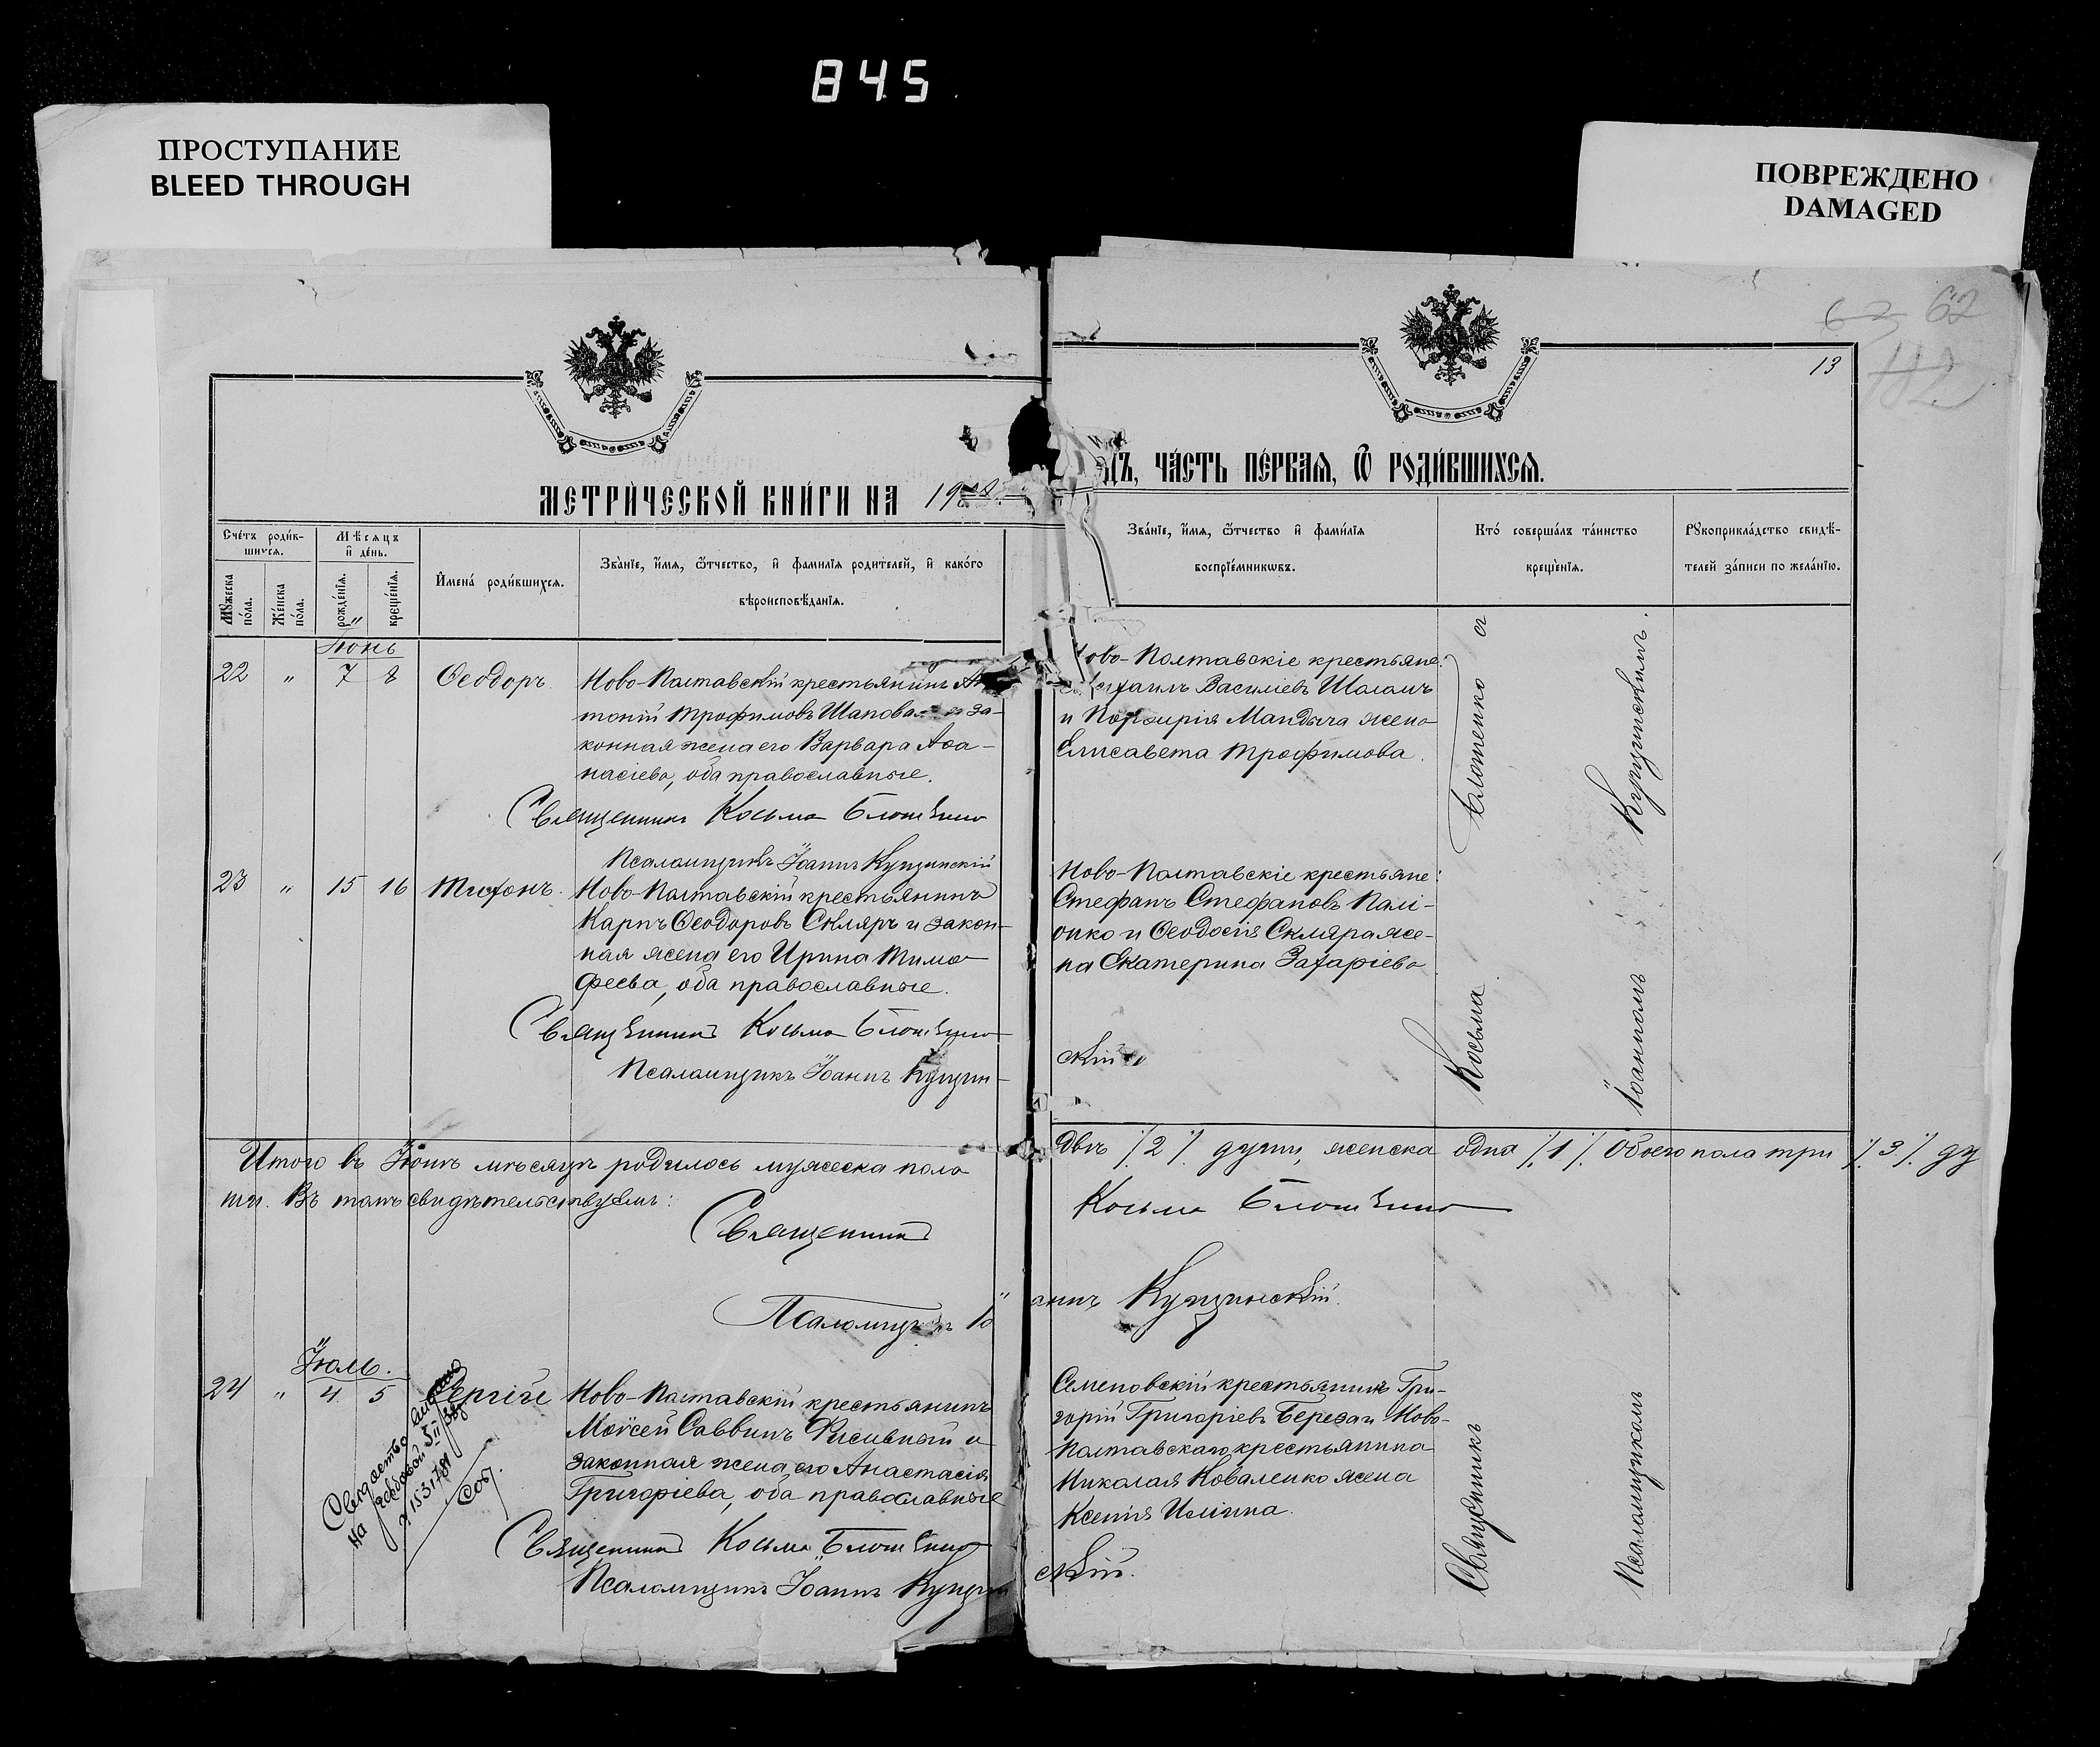 845
ПРОСТУПАНИЕ
BLEED THROUGH
ПОВРЕЖДЕНО
DAMAGED
62 62
13
МЕТРИ́ЧЕСКОЙ КНИ́ГИ НА 1908
ДЪ, ЧА́СТЬ ПЕ́РВАЯ, Ѿ РОДИ́ВШИХСЯ.
Сче́тъ роди́в-
шихся.
Мѣ́сяцъ
и҆ де́нь.
Мꙋ́жеска
по́ла.
Же́нска
по́ла.
рожде́нїя.
креще́нїя.
И҆мена́ роди́вшихся.
Зва́нїе, и҆́мя, ѻ҆́тчество, и҆ фами́лїя роди́телей, и҆ како́го
вѣроисповѣ́данїя.
Зва́нїе, и҆́мя, ѻ҆́тчество и҆ фами́лїя
воспрїе́мникѡвъ.
Кто́ соверша́лъ та́инство
креще́нїя.
Рꙋкоприкла́дство свидѣ́-
телей за́писи по жела́нїю.
Іюнь
22 " 7 8 Ѳеодоръ
Ново-Полтавскій крестьянинъ Ан
тоній Трофимовъ Шаповал и за-
конная жена его Варвара Аѳа-
насіева, оба православные.
Священникъ Косьма Блошенко
Псаломщикъ Іоаннъ Купчинскій
Ново-Полтавскіе крестьяне:
Василіевъ
и Порфирія Мандыча жена
Елисавета Трофимова.
23 " 15 16 Тихонъ.
Ново-Полтавскій крестьянинъ
Карпъ Ѳеодоровъ Скляръ и закон-
ная жена его Ирина Тимо-
феева, оба православные.
Священникъ Косьма Блошенко
Псаломщикъ Іоаннъ Купчин-
скій
Ново-Полтавскіе крестьяне:
Стефанъ Стефановъ Палі-
енко и Ѳеодосія Скляра же-
на Екатерина Захаріева
Итого въ Іюнѣ мѣсяцѣ родилось мужеска пола
двѣ /2/ души, женска одна /1/. Обоего пола три /3/ ду
ши. Въ томъ свидѣтельствуемъ:
Священникъ Косьма Блошенко
Псаломщикъ Іоаннъ Купчинскій.
Іюль.
24 " 4 5 Сергій
Ново-Полтавскій крестьянинъ
Моѵсей Саввинъ и
законная жена его Анастасія
Григоріева, оба православные
Священникъ Косьма Блошенко
Псаломщикъ Іоаннъ Купчин
скій.
Семеновскій крестьянинъ Гри-
горій Григоріевъ Береза и Ново-
Полтавскаго крестьянина
Николая Коваленко жена
Ксенія Иліина.
Священникъ Косьма Блошенко съ
Псаломщикомъ Іоанномъ Купчинскимъ.